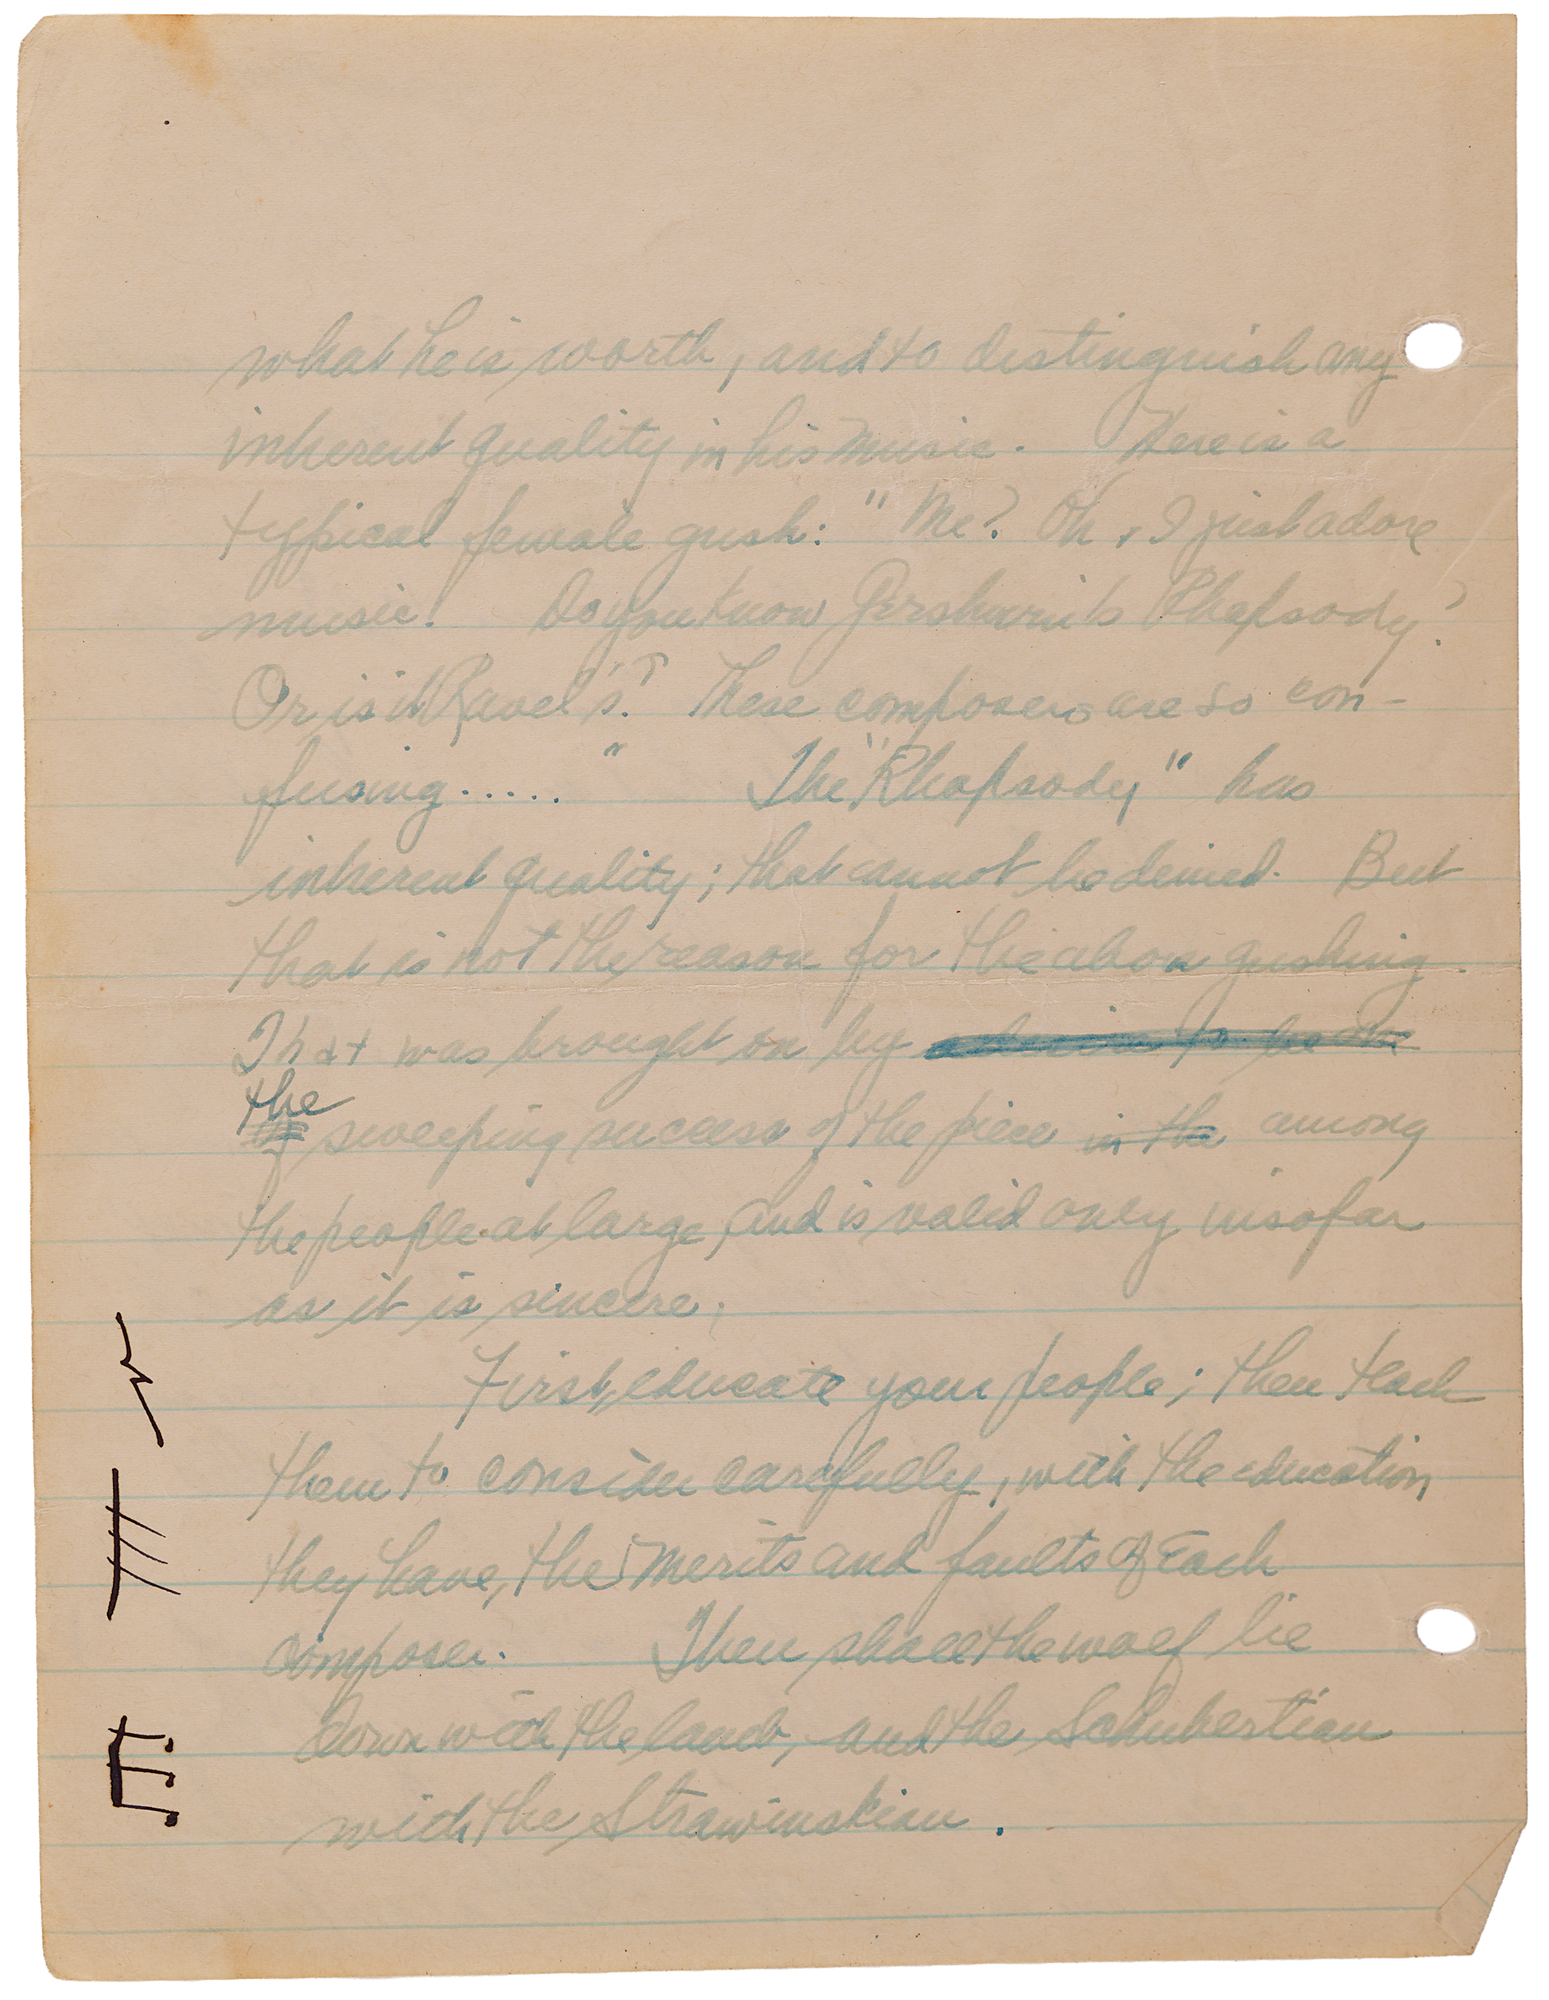 what he is worth, and to distinguish any
inherent quality in his music. Here is a
typical female gush: "Me? Oh, I just adore
music! Do you know Gershwin's Rhapsody?
Or is it Ravel's? These composers are so con-
fusing....." The "Rhapsody" has
inherent quality; that cannot be denied. But
that is not the reason for the above gushing.
That was brought on by a desire to be one
the
of sweeping success of the piece in the among
the people at large, and is valid only insofar
as it is sincere.
First, educate your people; then teach
them to consider carefully, with the education
they have, the merits and faults of each
composer. Then shall the wolf lie
down with the lamb, and the Schubertian
with the Strawinskian.